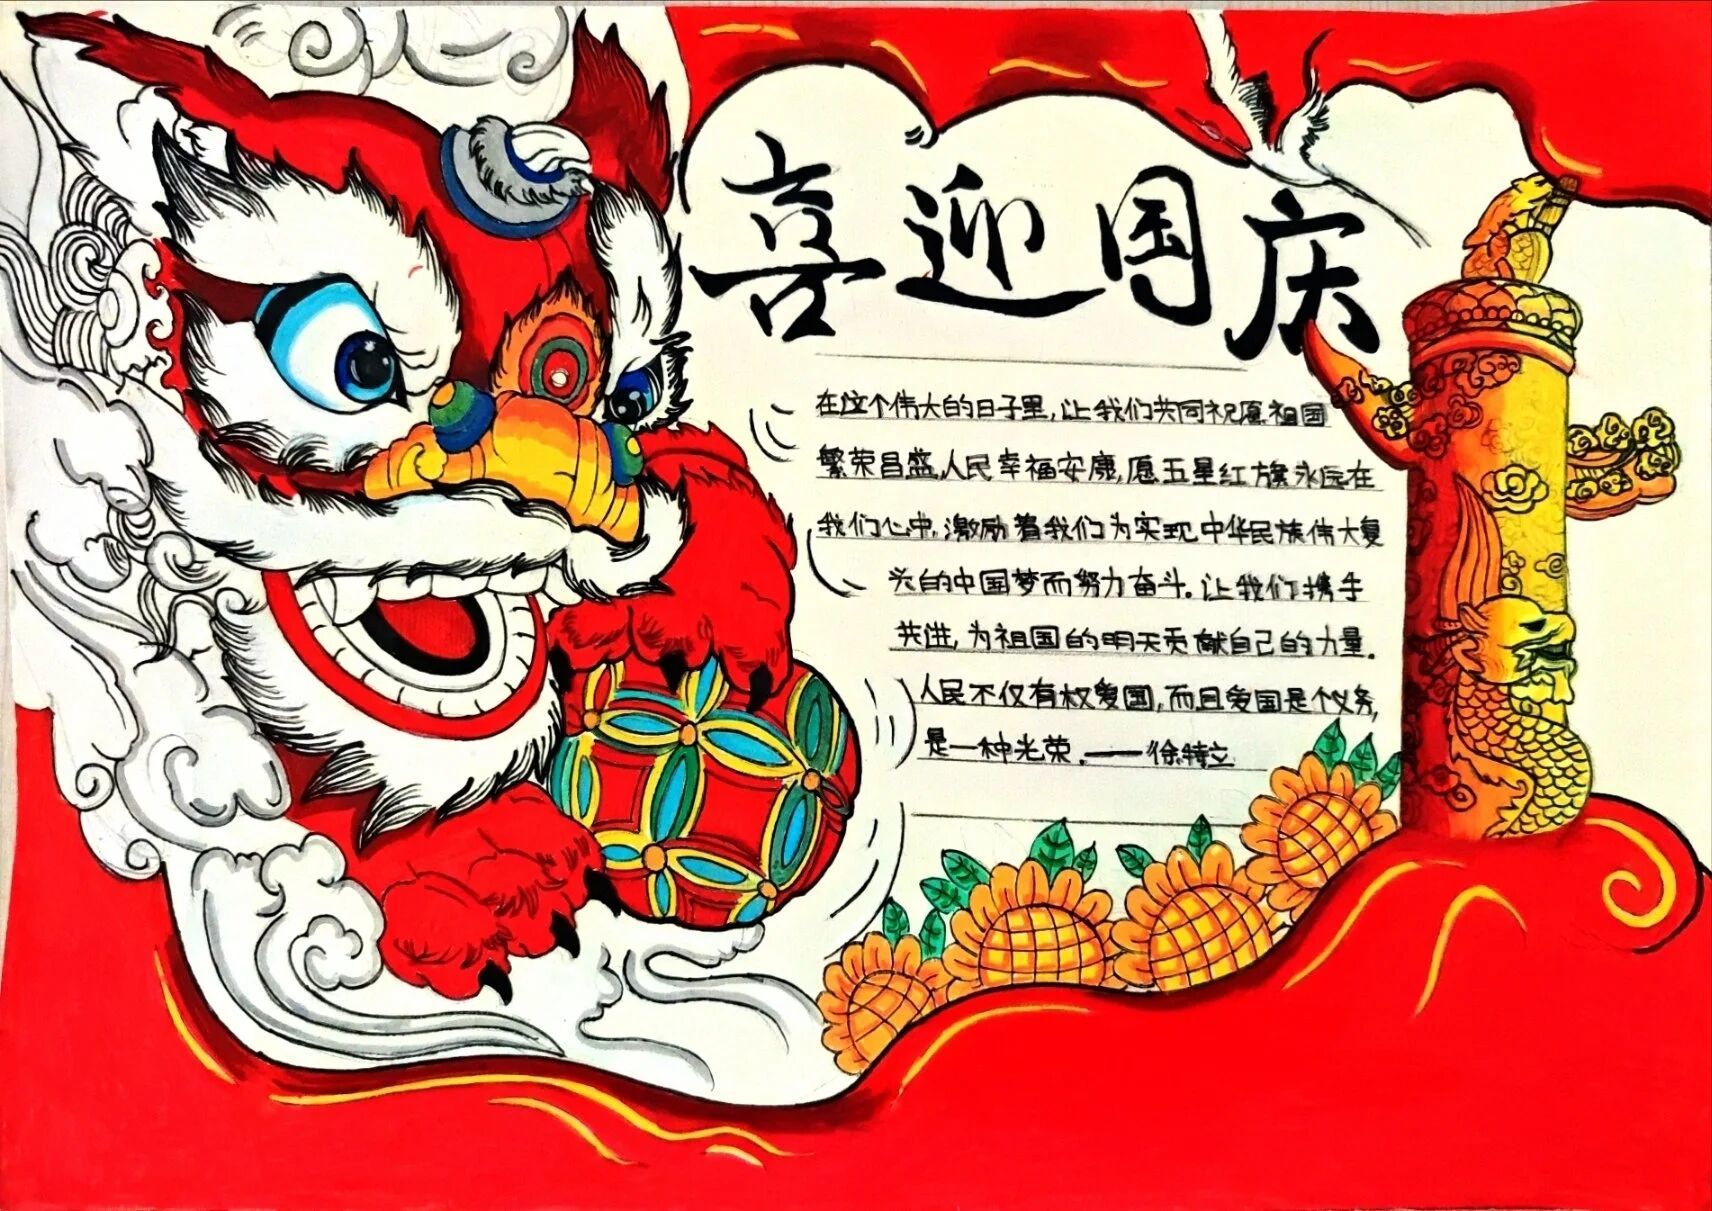 喜迎国庆
在这个伟大的日子里,让我们共同祝愿祖国
繁荣昌盛,人民幸福安康,愿五星红旗永远在
我们心中,激励着我们为实现中华民族伟大复
兴的中国梦而努力奋斗。让我们携手
共进,为祖国的明天贡献自己的力量。
人民不仅有权爱国,而且爱国是个义务,
是一种光荣。——徐特立